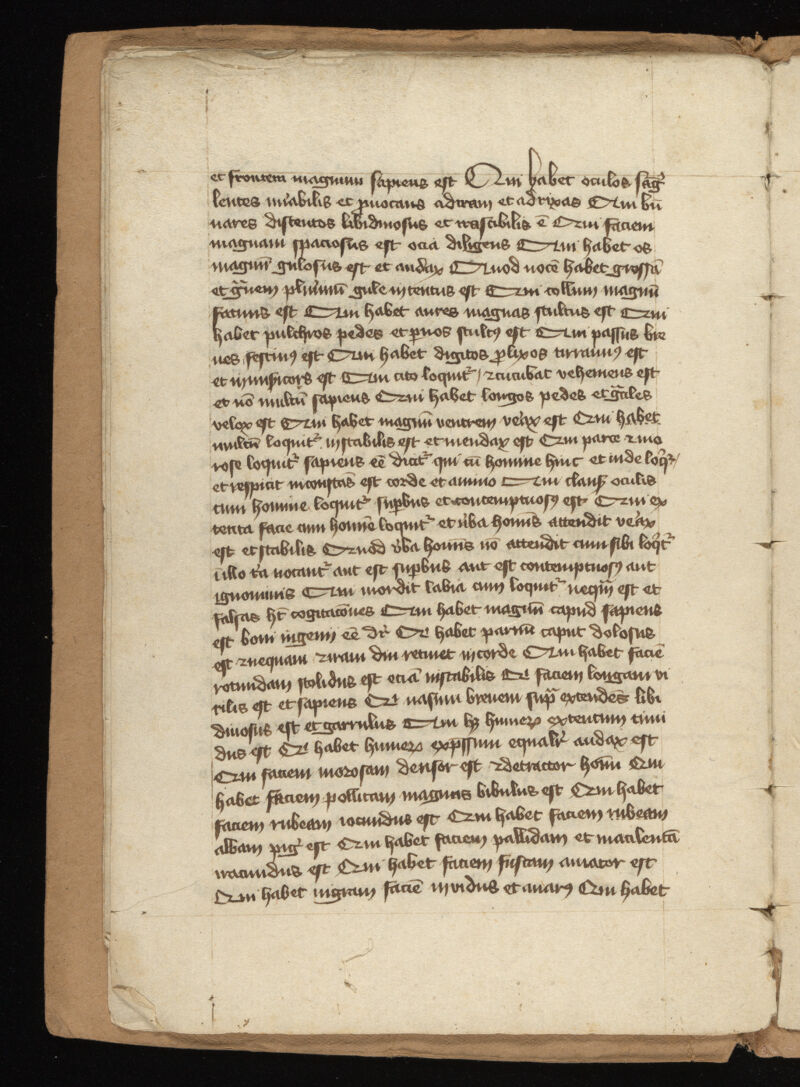 et frontem magnum sapiens est Qui habet oculos
lentes mirabilis et provocans ad iram et ad rixas Qui
nares distentos libidinosus et irascibilis ē Qui faciem
magnam spaciosus est ocia diligens Qui habet os
magnū gulosus est et audax Quod vocē habet grossā
et gule intentus est Qui collum magnū
fatuus est Qui habet aures magnas stultus est Qui
habet pulchros pedes et pravos stultus est Qui passus bre
ves festinus est Qui habet digitos prolixos tirannus est
et est Qui cito loquitur vehemens est
et nō multū sapiens Qui habet longos pedes et graciles
velox est Qui habet magnū ventrem verax est Qui habet
multū loquitur instabilis est et mendax est Qui parce et mo
rose loquitur sapiens eē dicitur qui cū homine hinc et inde loquitur
et respicit incōstās est corde et animo Qui clausis oculis
cum homine loquitur superbus et contemptuosus est Qui ex
tenta facie cum homine loquitur et verba hominis attendit verax
est et stabilis Quod verba hominis nō attendit cum sibi loquitur
aut est superbus aut est contemptuosus aut
Qui mordit labia cum loquitur nequam est et
falsas habet cogitacōnes Qui habet magnū capud sapiens
est boni ingenii eē dicitur Qui habet parvū caput dolosus
est et nequam et iram diu retinet in corde Qui habet faciē
rotundam stolidus est eciā instabilis Qui faciem longam vi
rilis est et sapiens Qui nasum brevem libi
dinosus est et garrulus Qui habet extentum timi
dus est Qui habet audax est
Qui faciem morosam est et detractor Qui
habet faciem bibulus est Qui habet
faciem rubeam iocundus est Qui habet faciem rubeam
albam est Qui habet faciem pallidam et macilentā
iracundus est Qui habet faciem fuscam amator est
Qui habet nigram faciē invidus et avarus Qui habet